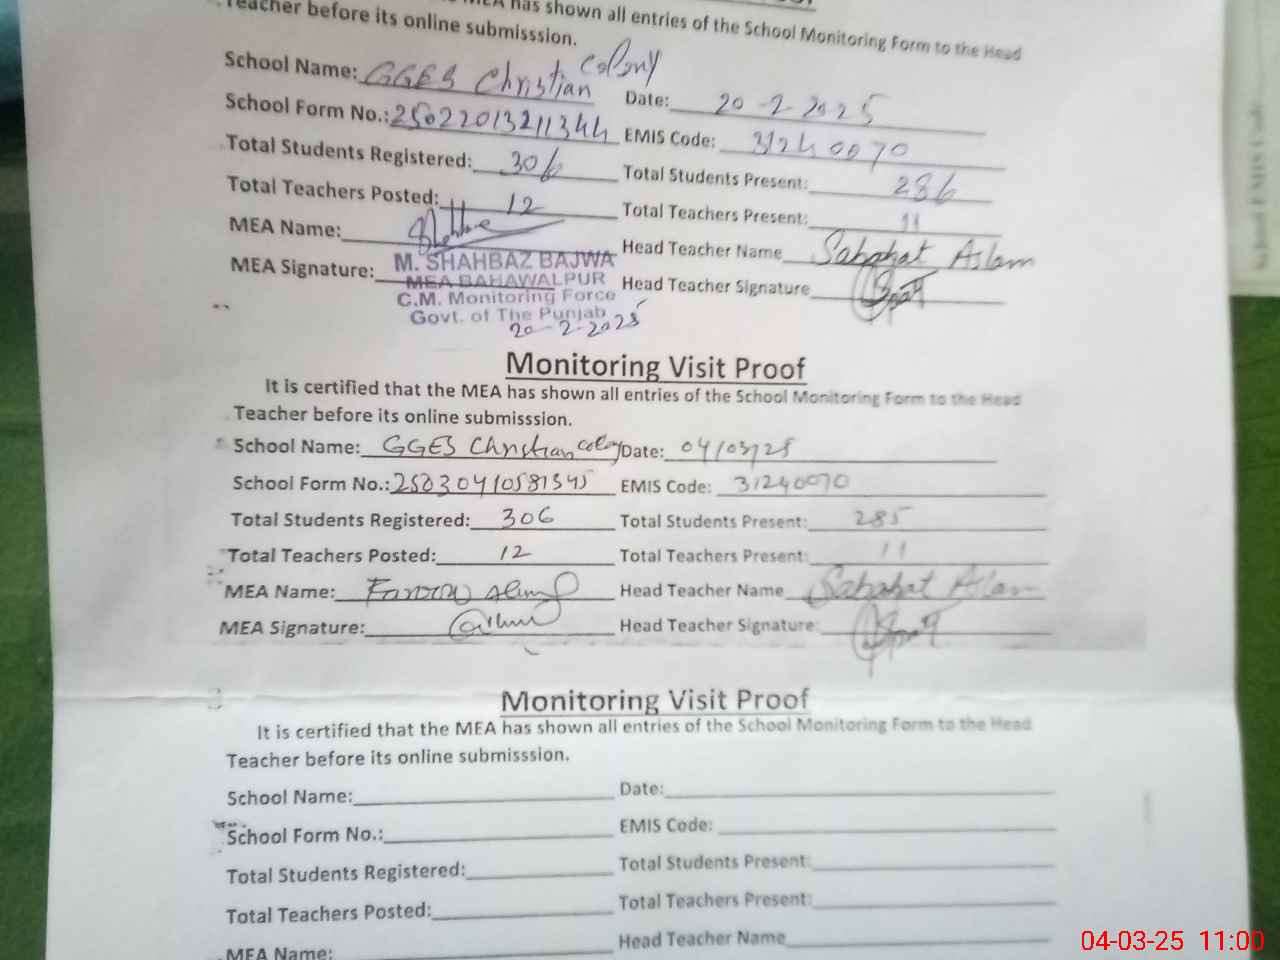 MEA has shown all entries of the School Monitoring Form to the Head
Teacher before its online submisssion.
School Name: GGES Christian Colony Date: 20-2-2025
School Form No.: 25022013211344 EMIS Code: 31240070
Total Students Registered: 306 Total Students Present: 286
Total Teachers Posted: 12 Total Teachers Present: 11
MEA Name: Head Teacher Name Sabahat Aslam
MEA Signature: Head Teacher Signature
M. SHAHBAZ BAJWA
MEA BAHAWALPUR
C.M. Monitoring Force
Govt. of The Punjab
20-2-2025
Monitoring Visit Proof
It is certified that the MEA has shown all entries of the School Monitoring Form to the Head
Teacher before its online submisssion.
School Name: GGES Christian colony Date: 04/03/25
School Form No.: 25030410581545 EMIS Code: 31240070
Total Students Registered: 306 Total Students Present: 285
Total Teachers Posted: 12 Total Teachers Present: 11
MEA Name: Head Teacher Name Sabahat Aslam
MEA Signature: Head Teacher Signature:
Monitoring Visit Proof
It is certified that the MEA has shown all entries of the School Monitoring Form to the Head
Teacher before its online submisssion.
School Name: Date:
School Form No.: EMIS Code:
Total Students Registered: Total Students Present:
Total Teachers Posted: Total Teachers Present:
MEA Name: Head Teacher Name
School EMIS Code
04-03-25 11:00